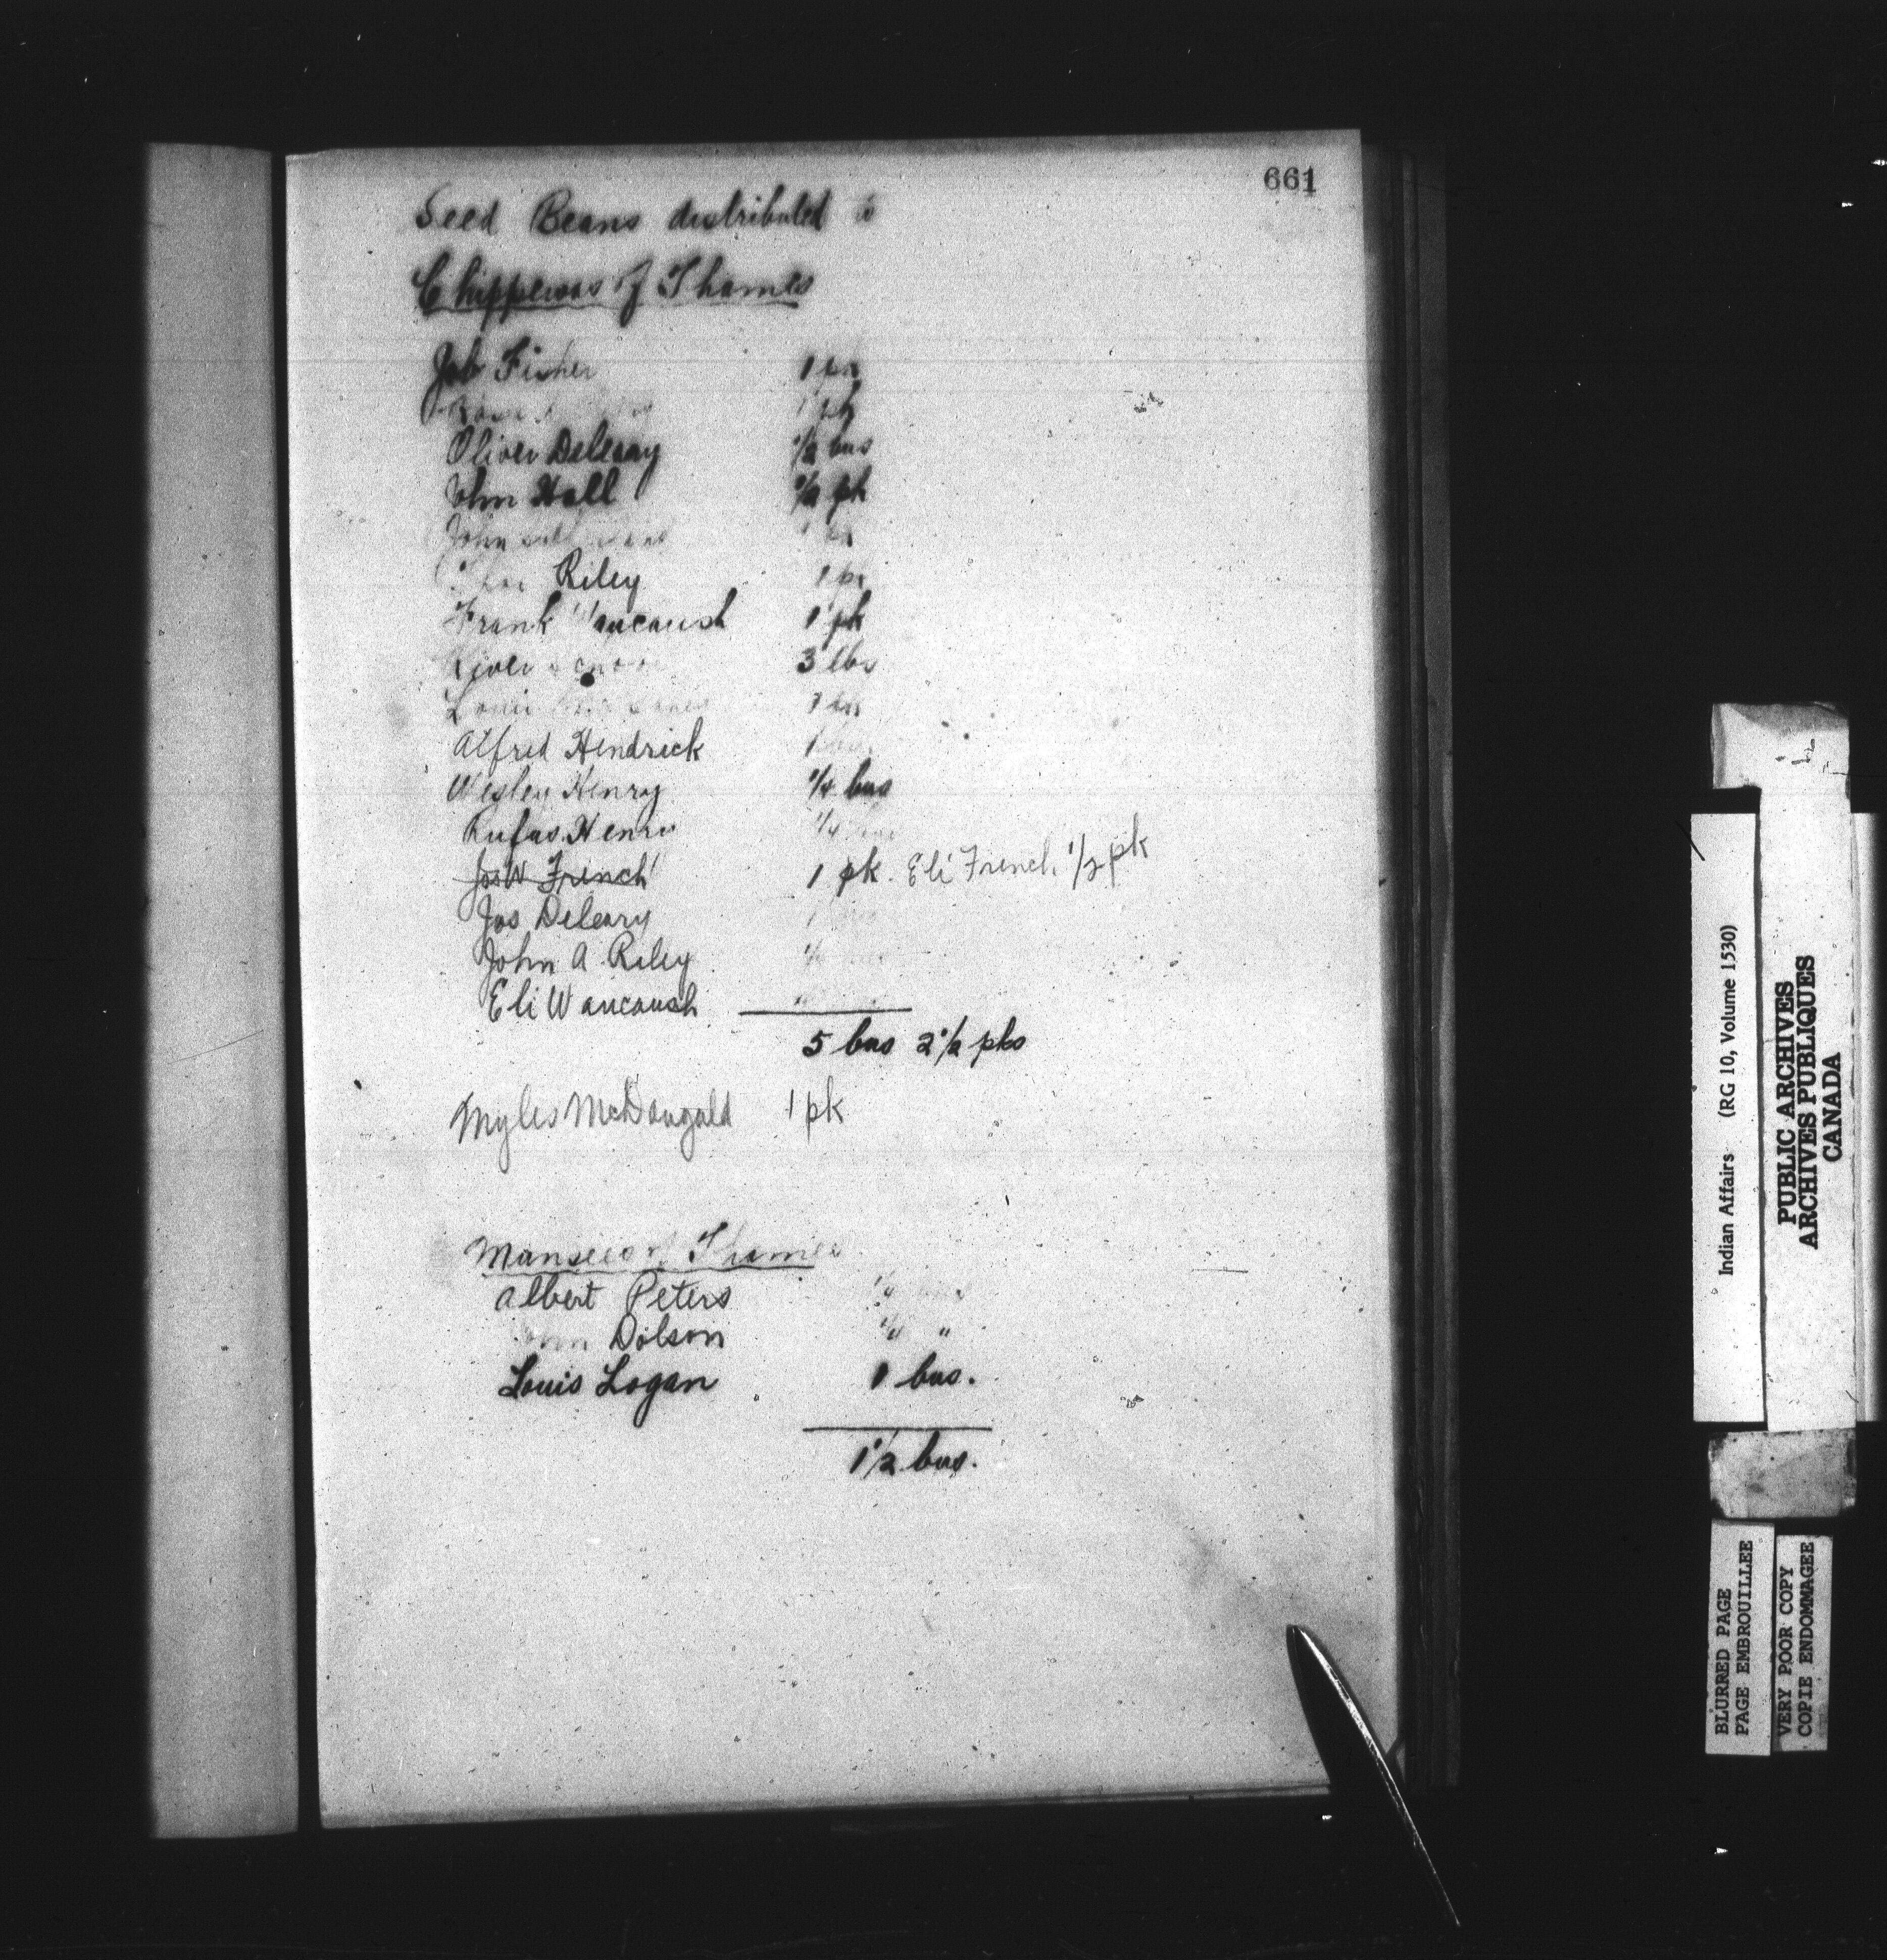 661
Seed Beans distributed to
Chippewas of Thames
Job Fisher 1 pk
1 pk
Oliver Deleary 1/2 bus
John Hall 1/2 pk
John 1 pk
Riley 1 pk
Frank Waucaush 1 pk
3 lbs
Louis 1
Alfred Hendrick 1
Wesley Henry 1/4 bus
Rufus Henry 1/4
Jos W French 1 pk. Eli French 1/2 pk
Jos Deleary 1
John A Riley
Eli Waucaush
5 bus 2 1/2 pks
Myles McDougald 1 pk
Munsees of Thames
Albert Peters 1/4 bus
John Dolson 1/4 "
Louis Logan 1 bus.
1 1/2 bus.
Indian Affairs (RG 10, Volume 1530)
PUBLIC ARCHIVES
ARCHIVES PUBLIQUES
CANADA
BLURRED PAGE
PAGE EMBROUILLEE
VERY POOR COPY
COPIE ENDOMMAGEE